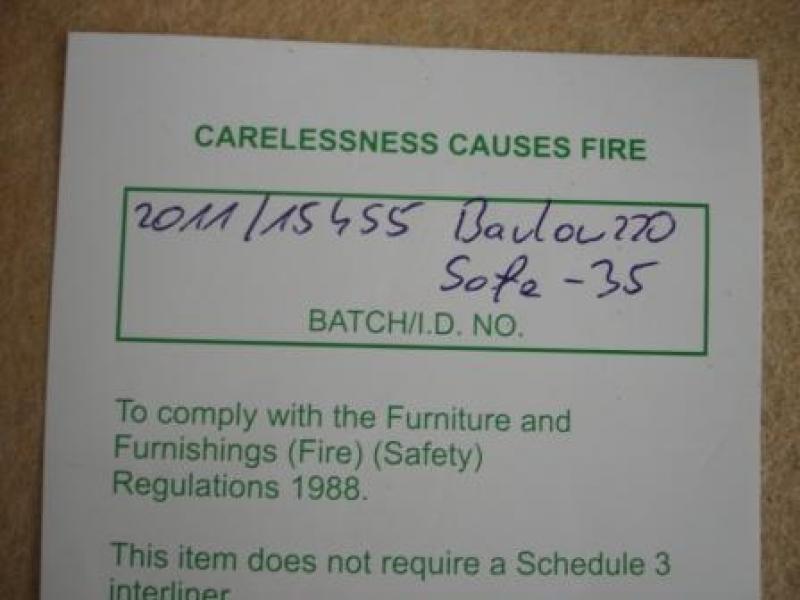 CARELESSNESS CAUSES FIRE
2011/15455 Barlow 220
Sofa - 35
BATCH/I.D. NO.
To comply with the Furniture and
Furnishings (Fire) (Safety)
Regulations 1988.
This item does not require a Schedule 3
interliner